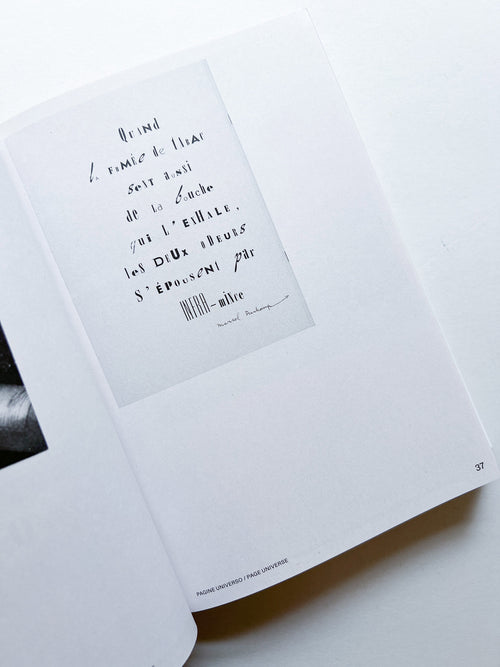 Quand
la fumée de tabac
sent aussi
de la bouche
qui l'exhale,
les deux odeurs
s'épousent par
INFRA-mince
Marcel Duchamp
37
PAGINE UNIVERSO / PAGE UNIVERSE